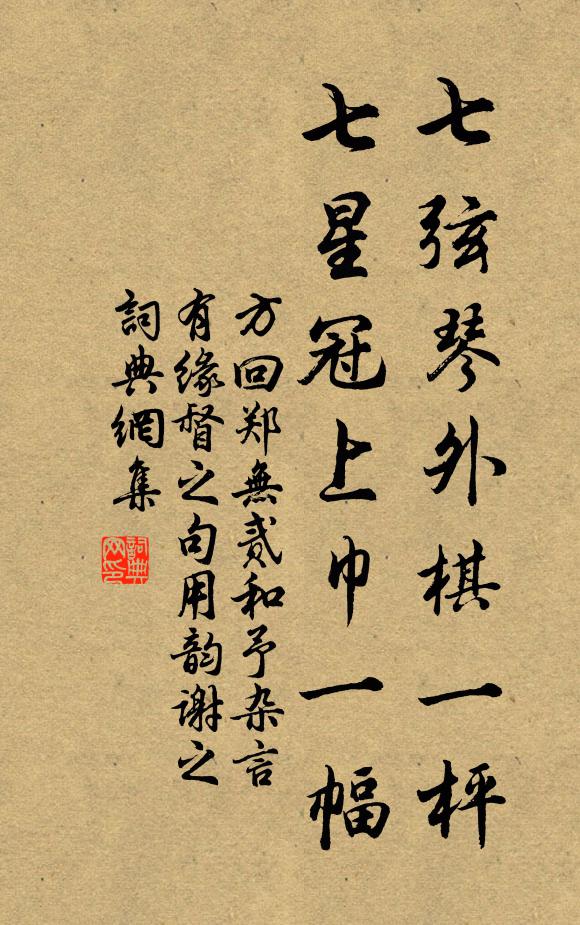 七弦琴外棋一枰
七星冠上巾一幅
方回郑無貳和予杂言
有缘督之句用韵谢之
詞典網集
詞典网印